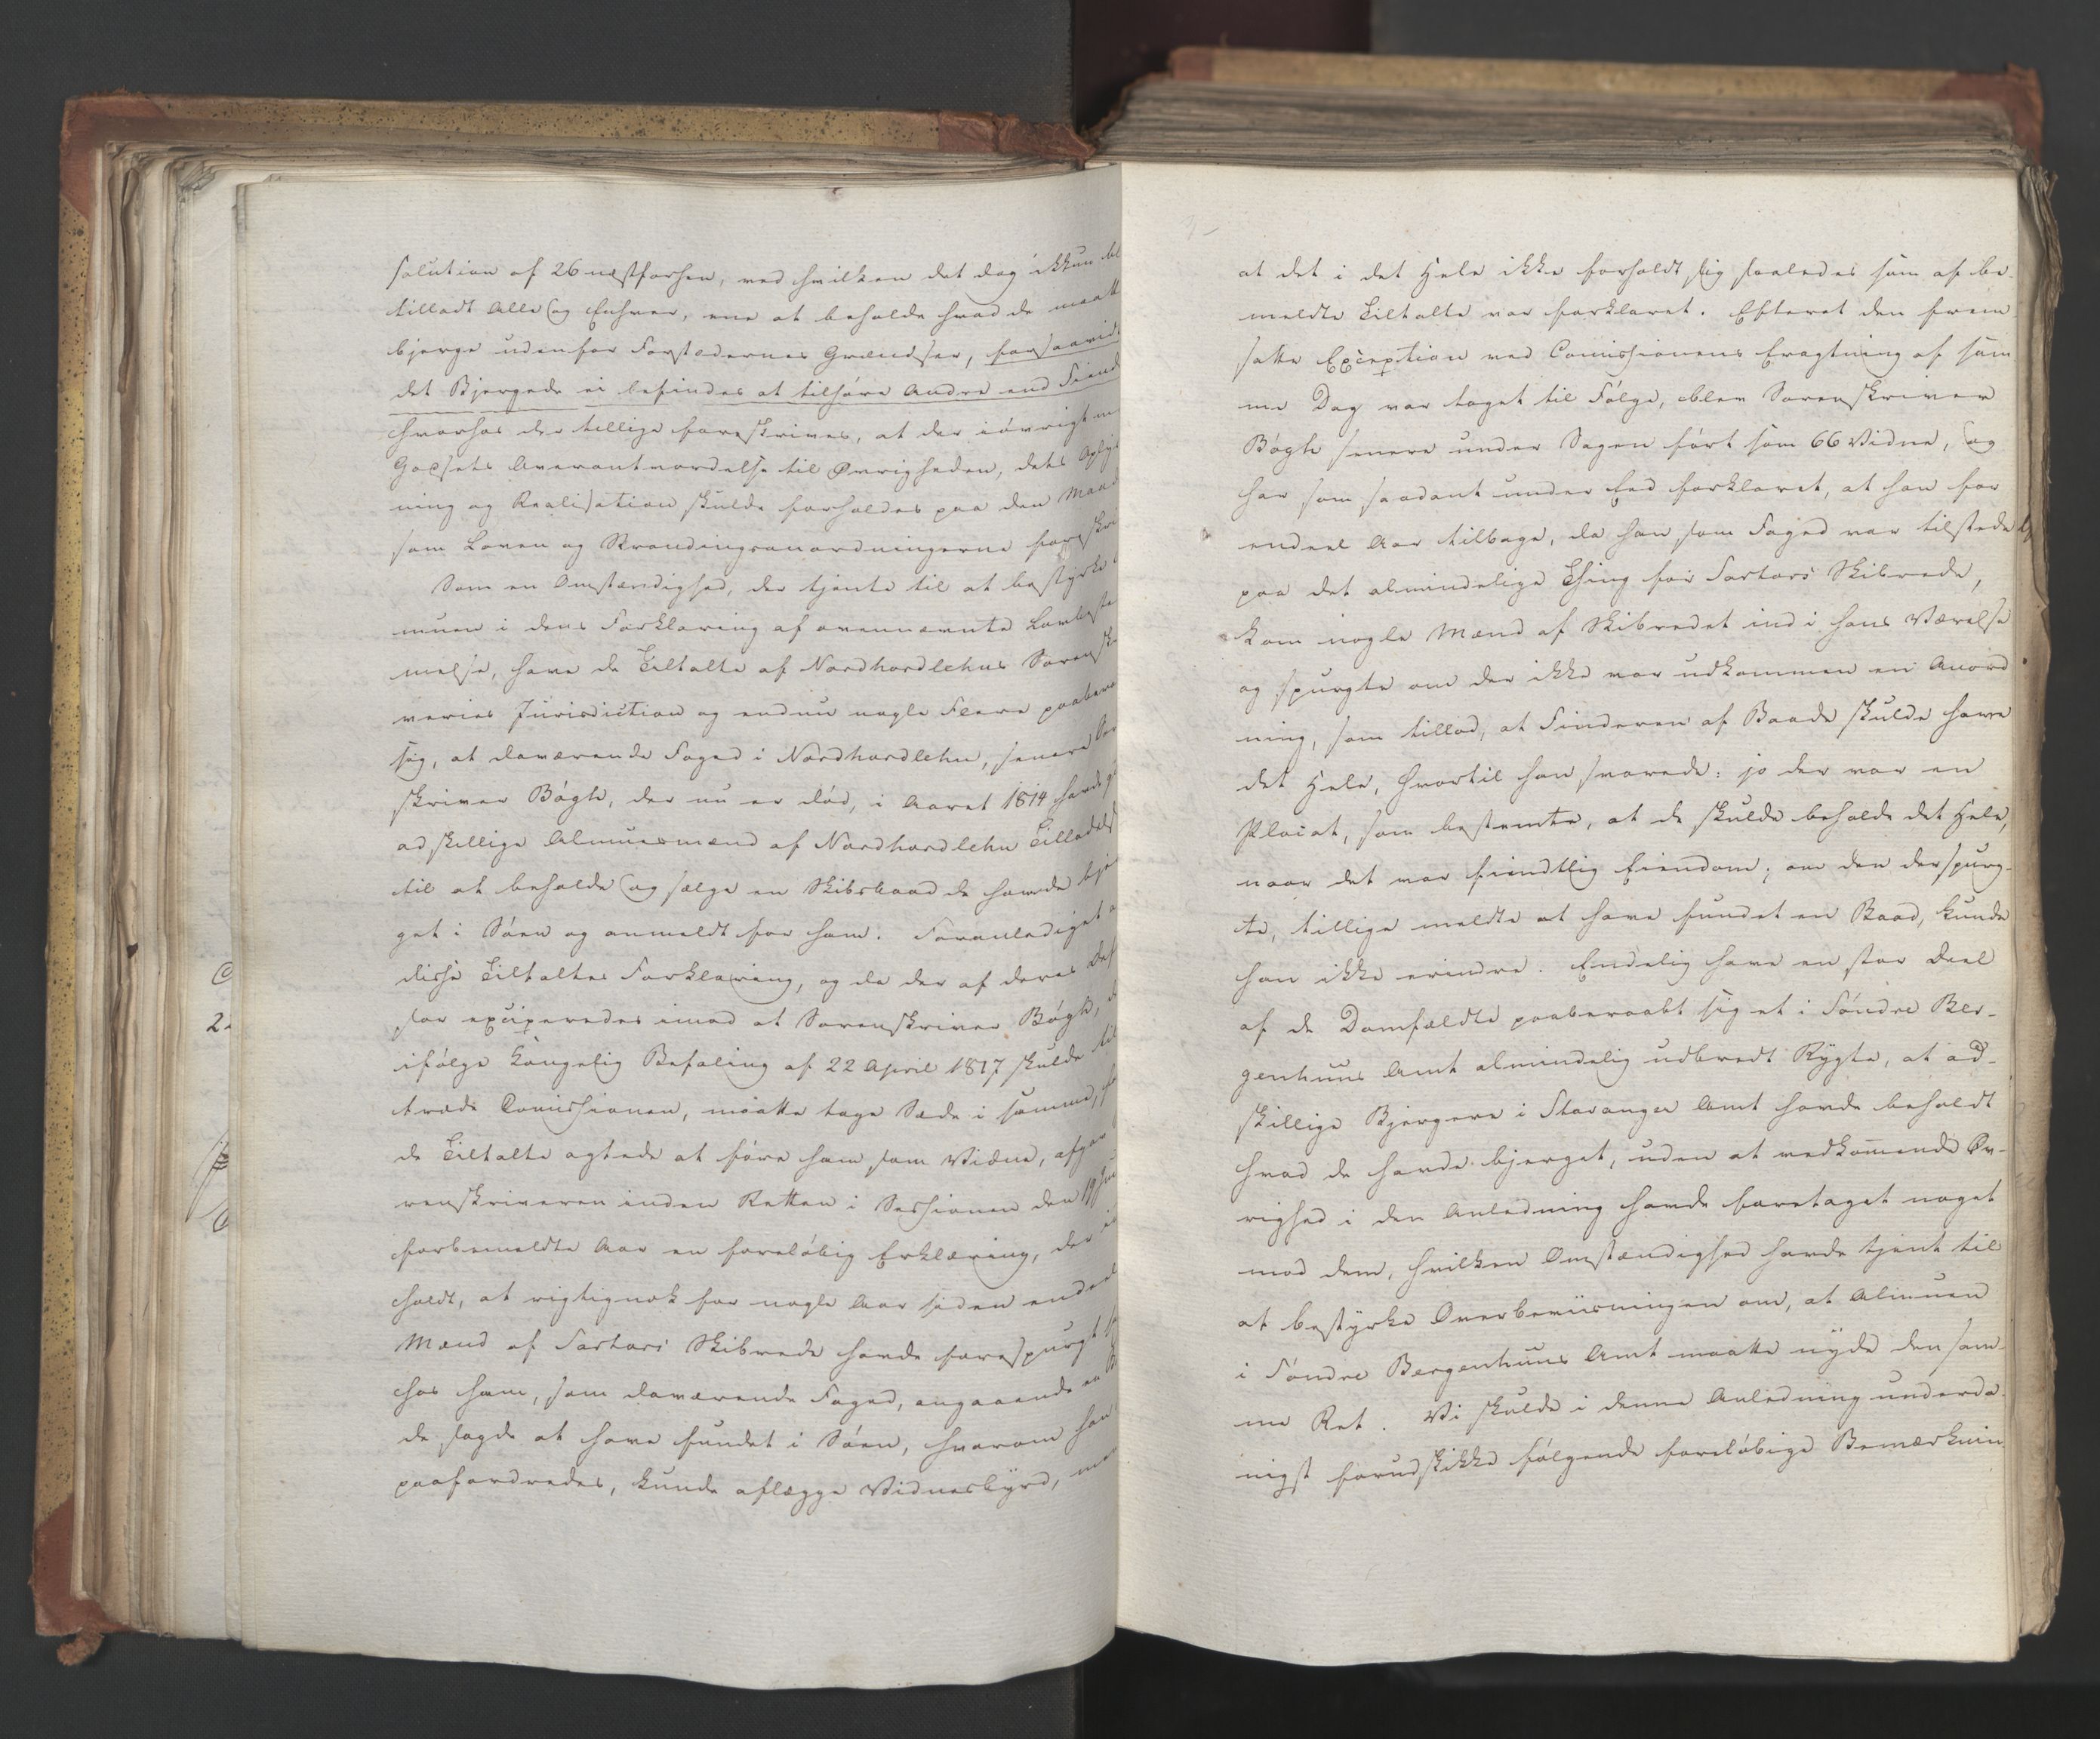 solution af 26 næstforhen, ved hvilken det dog ikkun bl
tilladt Alle og Enhver, ene at beholde hvad de maatt
bjerge udenfor Forstædernes Grændser, forsaavidt
det Bjergede ei befindes at tilhøre Andre end Fiend
hvorhos der tillige foreskrives, at der iøvrigt m
Godsets Overantvordelse til Øvrigheden, dets Oplys
ning og Realisation skulde forholdes paa den Maad
som Loven og Strandingsanordningerne foreskri
Som en Omstændighed, der tjente til at bestyrke
muen i dens Forklaring af ovennævnte Lovbeste
melse, have de Tiltalte af Nordhordlehns Sorenskr
veries Jurisdiction og endnu nogle Flere paabero
sig, at daværende Foged i Nordhordlehn, senere Sor
skriver Bøgh, der nu er død, i Aaret 1814 havde g
adskillige Almuesmænd af Nordhordlehn Tilladels
til at beholde og sælge en Skibsbaad de havde bjer
get i Søen og anmeldt for ham. Foranlediget a
disse Tiltaltes Forklaring, og da der af deres Def
sor exciperedes imod at Sorenskriver Bøgh, d
ifølge Kongelig Befaling af 22 April 1817 skulde til
træde Commissionen, maatte tage Sæde i samme, fo
de Tiltalte agtede at føre ham som Vidne, afgav
renskriveren inden Retten i Sessionen den 19 Jun
forbemeldte Aar en foreløbig Erklæring, der in
holdt, at rigtignok for nogle Aar siden endeel
Mænd af Sartors Skibrede havde forespurgt s
hos ham, som daværende Foged, angaaende en B
de sagde at have fundet i Søen, hvorom han
paafordredes, kunde aflægge Vidnesbyrd, m
at det i det Hele ikke forholdt sig saaledes som af be-
meldte Tiltalte var forklaret. Efterat den frem
satte Exception ved Commissionens Eragtning af sam
me Dag var taget til Følge, blev Sorenskriver
Bøgh senere under Sagen ført som 66 Vidne, og
har som saadant under Eed forklaret, at han for
endeel Aar tilbage, da han som Foged var tilstede
paa det almindelige Thing for Sartors Skibrede,
kom nogle Mænd af Skibredet ind i hans Værelse
og spurgte om der ikke var udkommen en Anord
ning, som tillod, at Finderen af Baade skulde have
det Hele, hvortil han svarede: jo der var en
Placat, som bestemte, at de skulde beholde det Hele,
naar det var fiendtlig Eiendom; om den derspurg-
te, tillige meldte at have fundet en Baad, kunde
han ikke erindre. Endelig have en stor Deel
af de Domfældte paaberaabt sig et i Søndre Ber-
genhuus Amt almindelig udbredt Rygte, at ad-
skillige Bjergere i Stavanger Amt havde beholdt
hvad de havde bjerget, uden at vedkommende Øv-
righed i den Anledning havde foretaget noget
mod dem, hvilken Omstændighed havde tjent til
at bestyrke Overbeviisningen om, at Almuen
i Søndre Bergenhuus Amt maatte nyde den sam-
me Ret. Vi skulde i denne Anledning underda-
nigst forudskikke følgende foreløbige Bemærknin